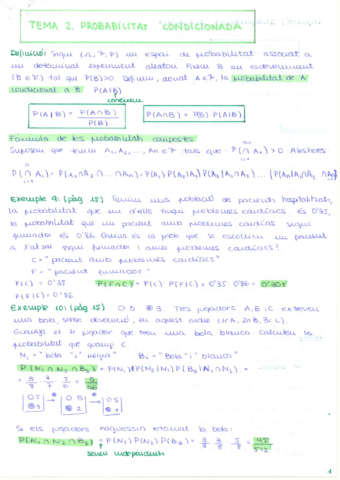 TEMA 2. PROBABILITAT CONDICIONADA
Definició: Sigui (Ω, F, P) un espai de probabilitat associat a
un determinat experiment aleatori. Fixem B un esdeveniment
(B ∈ F) tal que P(B)>0. Definim, donat A ∈ F, la probabilitat de A
condicionat a B: P(A|B)
P(A|B) = P(A∩B) / P(B)
P(A∩B) = P(B) P(A|B)
Fórmula de les probabilitats compostes
Suposem que tenim A₁, A₂, ..., An ∈ F tals que P(∩ Ai) > 0. Aleshores
P(∩ Ai) = P(A₁∩A₂∩...∩An) = P(A₁) P(A₂|A₁) P(A₃|A₁∩A₂) ...
Exemple 9: (pàg 15) Tenim una població de pacients hospitalitzats,
la probabilitat que un d'ells tingui problemes cardíacs és 0'35,
la probabilitat que un pacient amb problemes cardíacs sigui
fumador és 0'86. Quina és la prob que si escollim un pacient
a l'atzar sigui fumador i amb problemes cardíacs?
C = "pacient amb problemes cardíacs"
F = "pacient fumador"
P(C) = 0'35 P(F∩C) = P(C) · P(F|C) = 0'35 · 0'86 = 0'301
P(F|C) = 0'86
Exemple 10: (pàg 15) 05 ⊗3 Tres jugadors A, B i C extreuen
una bola, sense devolució, en aquest ordre (1r A, 2n B, 3r C).
Guanya el 1r jugador que treu una bola blanca. Calculeu la
probabilitat que guanyi C
Ni = "bola "i" negra" Bi = "Bola "i" blanca"
P(N₁∩N₂∩B₃) = P(N₁) P(N₂|N₁) P(B₃|N₁∩N₂) =
= 3/8 · 2/7 · 5/6 = 5/56
Si els jugadors haguessin retornat la bola:
P(N₁∩N₂∩B₃) = P(N₁) P(N₂) P(B₃) = 3/8 · 3/8 · 5/8 = 45/512
seran independents